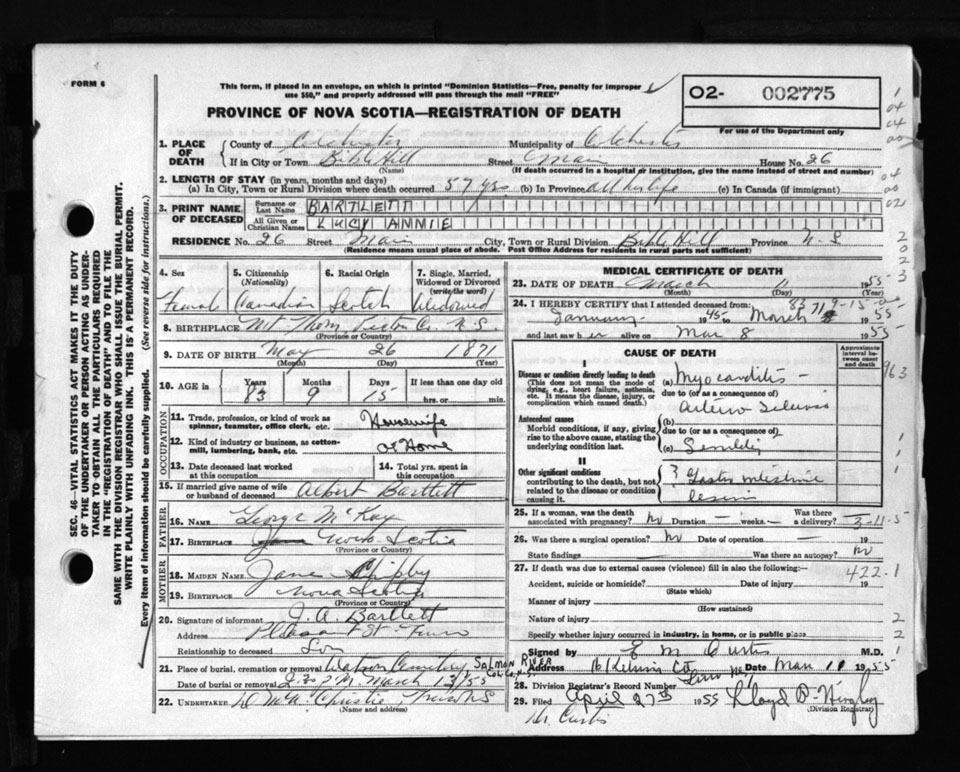 FORM 6
This form, if placed in an envelope, on which is printed "Dominion Statistics—Free, penalty for improper
use $50," and properly addressed will pass through the mail "FREE"
PROVINCE OF NOVA SCOTIA—REGISTRATION OF DEATH
O2- 002775
For use of the Department only
SEC. 46 VITAL STATISTICS ACT MAKES IT THE DUTY
OF THE UNDERTAKER OR PERSON ACTING AS UNDER-
TAKER TO OBTAIN ALL THE PARTICULARS REQUIRED
IN THE "REGISTRATION OF DEATH" AND TO FILE THE
SAME WITH THE DIVISION REGISTRAR WHO SHALL ISSUE THE BURIAL PERMIT.
WRITE PLAINLY WITH UNFADING INK. THIS IS A PERMANENT RECORD.
Every item of information should be carefully supplied. (See reverse side for instructions.)
1. PLACE OF DEATH County of Colchester Municipality of Colchester
If in City or Town Bible Hill Street Main House No. 26
(Name) (If death occurred in a hospital or institution, give the name instead of street and number)
2. LENGTH OF STAY (in years, months and days)
(a) In City, Town or Rural Division where death occurred 57 yrs (b) In Province all her life (c) In Canada (if immigrant)
3. PRINT NAME OF DECEASED Surname or Last Name BARTLETT
All Given or Christian Names LUCY ANNIE
RESIDENCE No. 26 Street Main City, Town or Rural Division Bible Hill Province N.S
(Residence means usual place of abode. Post Office Address for residents in rural parts not sufficient)
4. Sex 5. Citizenship (Nationality) 6. Racial Origin 7. Single, Married, Widowed or Divorced (write the word)
Female Canadian Scotch Widowed
8. BIRTHPLACE Mt Thom, Pictou Co. N.S.
(Province or Country)
9. DATE OF BIRTH May 26 1871
(Month) (Day) (Year)
10. AGE in Years Months Days If less than one day old
83 9 15 hrs. or min.
OCCUPATION
11. Trade, profession, or kind of work as spinner, teamster, office clerk, etc. Housewife
12. Kind of industry or business, as cotton-mill, lumbering, bank, etc. at Home
13. Date deceased last worked at this occupation 14. Total yrs. spent in this occupation
15. If married give name of wife or husband of deceased Albert Bartlett
FATHER
16. NAME George McKay
17. BIRTHPLACE Nova Scotia
(Province or Country)
MOTHER
18. MAIDEN NAME Jane
19. BIRTHPLACE Nova Scotia
(Province or Country)
20. Signature of informant J. A. Bartlett
Address Pleasant St Truro
Relationship to deceased Son
21. Place of burial, cremation or removal Watson Cemetery, SALMON RIVER Col. Co. N.S.
Date of burial or removal 2.30 P.M. March 13/55
22. UNDERTAKER Christie Truro N.S
(Name and address)
MEDICAL CERTIFICATE OF DEATH
23. DATE OF DEATH March 1955
(Month) (Day) (Year)
24. I HEREBY CERTIFY that I attended deceased from: 83 9-15
January 1945 to March 1955
and last saw her alive on Mar 8 1955
CAUSE OF DEATH
Approximate interval between onset and death
I
Disease or condition directly leading to death
(This does not mean the mode of dying, e.g., heart failure, asthenia, etc. It means the disease, injury, or complication which caused death.)
(a) Myocarditis
due to (or as a consequence of)
Arterio Sclerosis
Antecedent causes
Morbid conditions, if any, giving rise to the above cause, stating the underlying condition last.
(b)
due to (or as a consequence of)
(c) Senility
II
Other significant conditions
contributing to the death, but not related to the disease or condition causing it.
? Gastro intestinal
lesion
25. If a woman, was the death associated with pregnancy? No Duration — weeks. Was there a delivery?
3-11-5
26. Was there a surgical operation? No Date of operation — 19
State findings — Was there an autopsy? No
27. If death was due to external causes (violence) fill in also the following:—
422-1
Accident, suicide or homicide? Date of injury 19
(State which)
Manner of injury
(How sustained)
Nature of injury
Specify whether injury occurred in industry, in home, or in public place
Signed by E M Curtis M.D.
Address Truro NS Date Mar 11 1955
28. Division Registrar's Record Number
29. Filed April 27th 1955 Lloyd
(Division Registrar)
Dr. Curtis